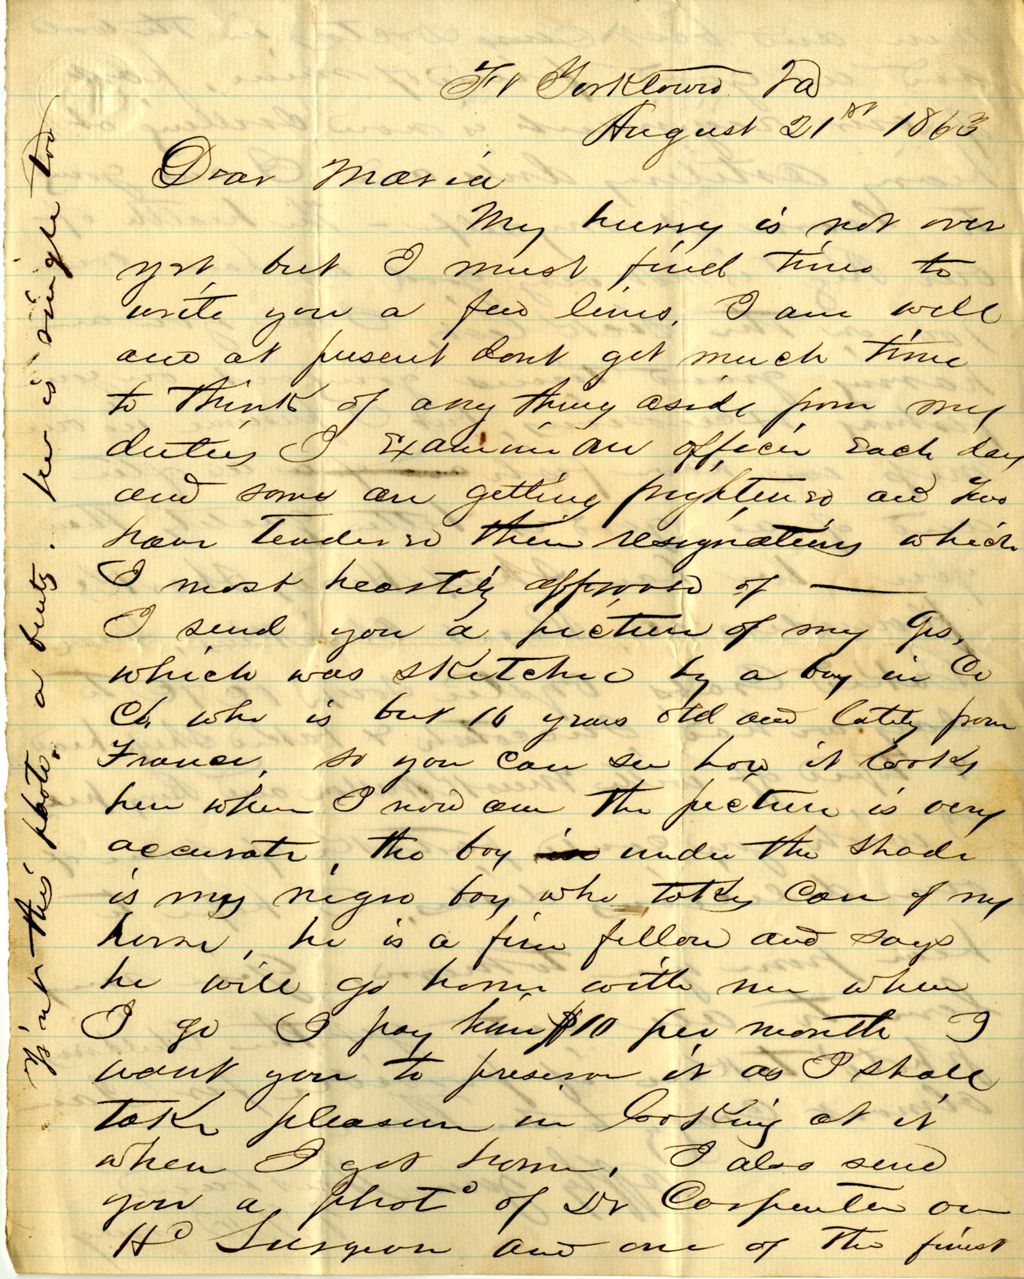 Ft Yorktown Va
August 21st 1863
Dear Maria
My hurry is not over
yet, but I must find time to
write you a few lines, I am well
and at present dont get much time
to think of any thing aside from my
duties I examin an officer each day
and some are getting frightened and two
have tendered their resignations which
I most heartily approved of —
I send you a picture of my Qrs,
which was sketched by a boy in Co
Ch who is but 16 years old and lately from
France, so you can see how it looks
here where I now am the picture is very
accurate, the boy in under the shade
is my negro boy who takes care of my
horse, he is a fine fellow and says
he will go home with me when
I go I pay him $10 per month I
want you to preserve it as I shall
take pleasure in looking at it
when I get home, I also send
you a photo of Dr Carpenter our
Hd Surgeon and one of the finest
this photo, a beauty. he is single too